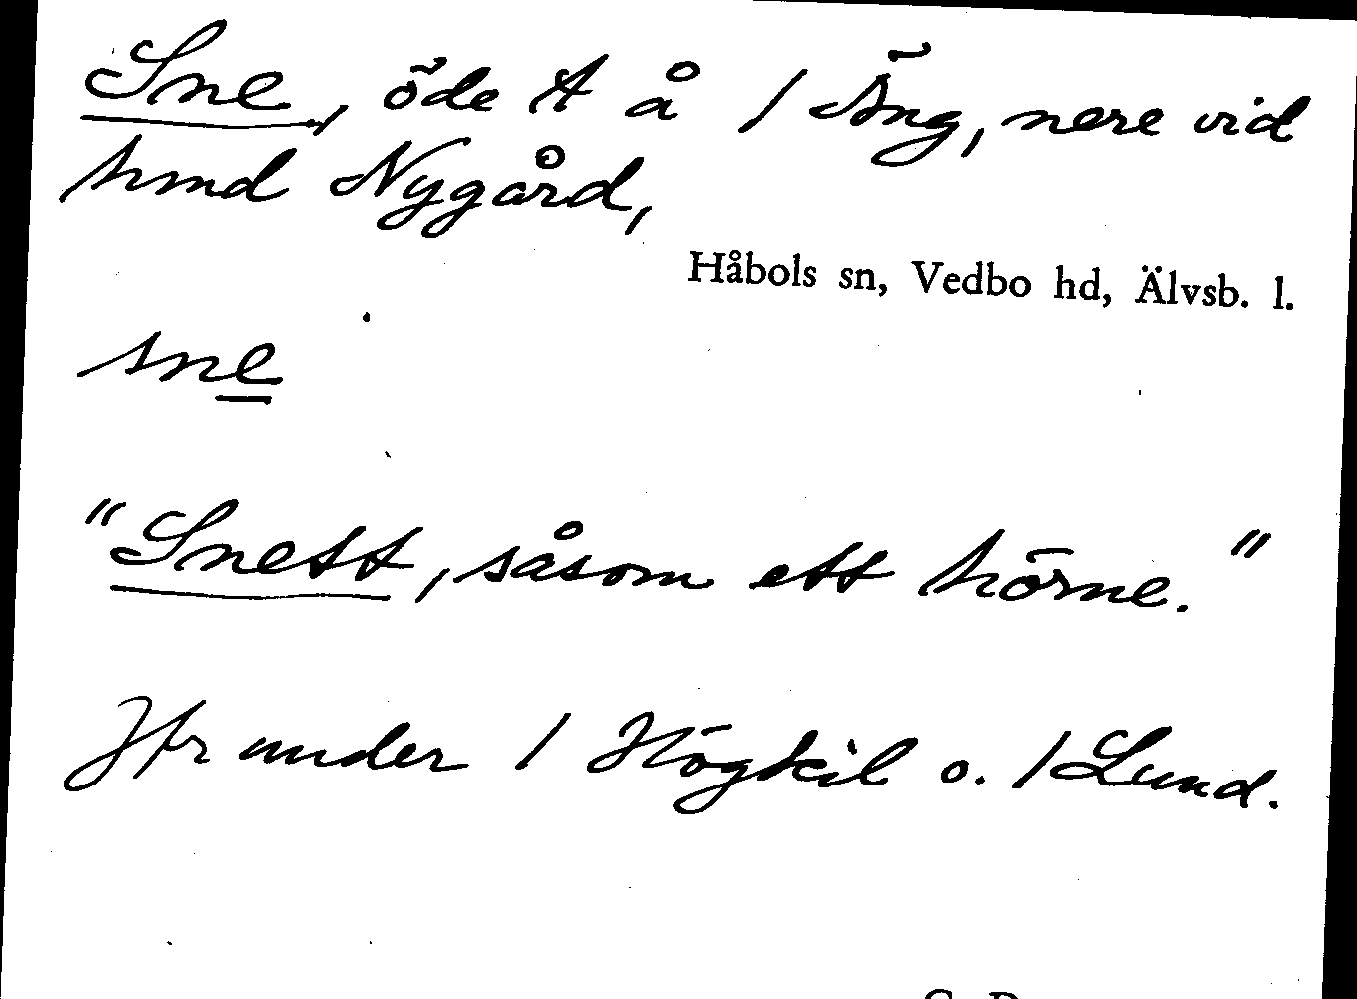 Sne, öde t å / Äng, nere vid
hmd Nygård,
Håbols sn, Vedbo hd, Älvsb. l.
sne
"Snett, såsom ett hörne."
Jfr under / Högkil o. / Lund.